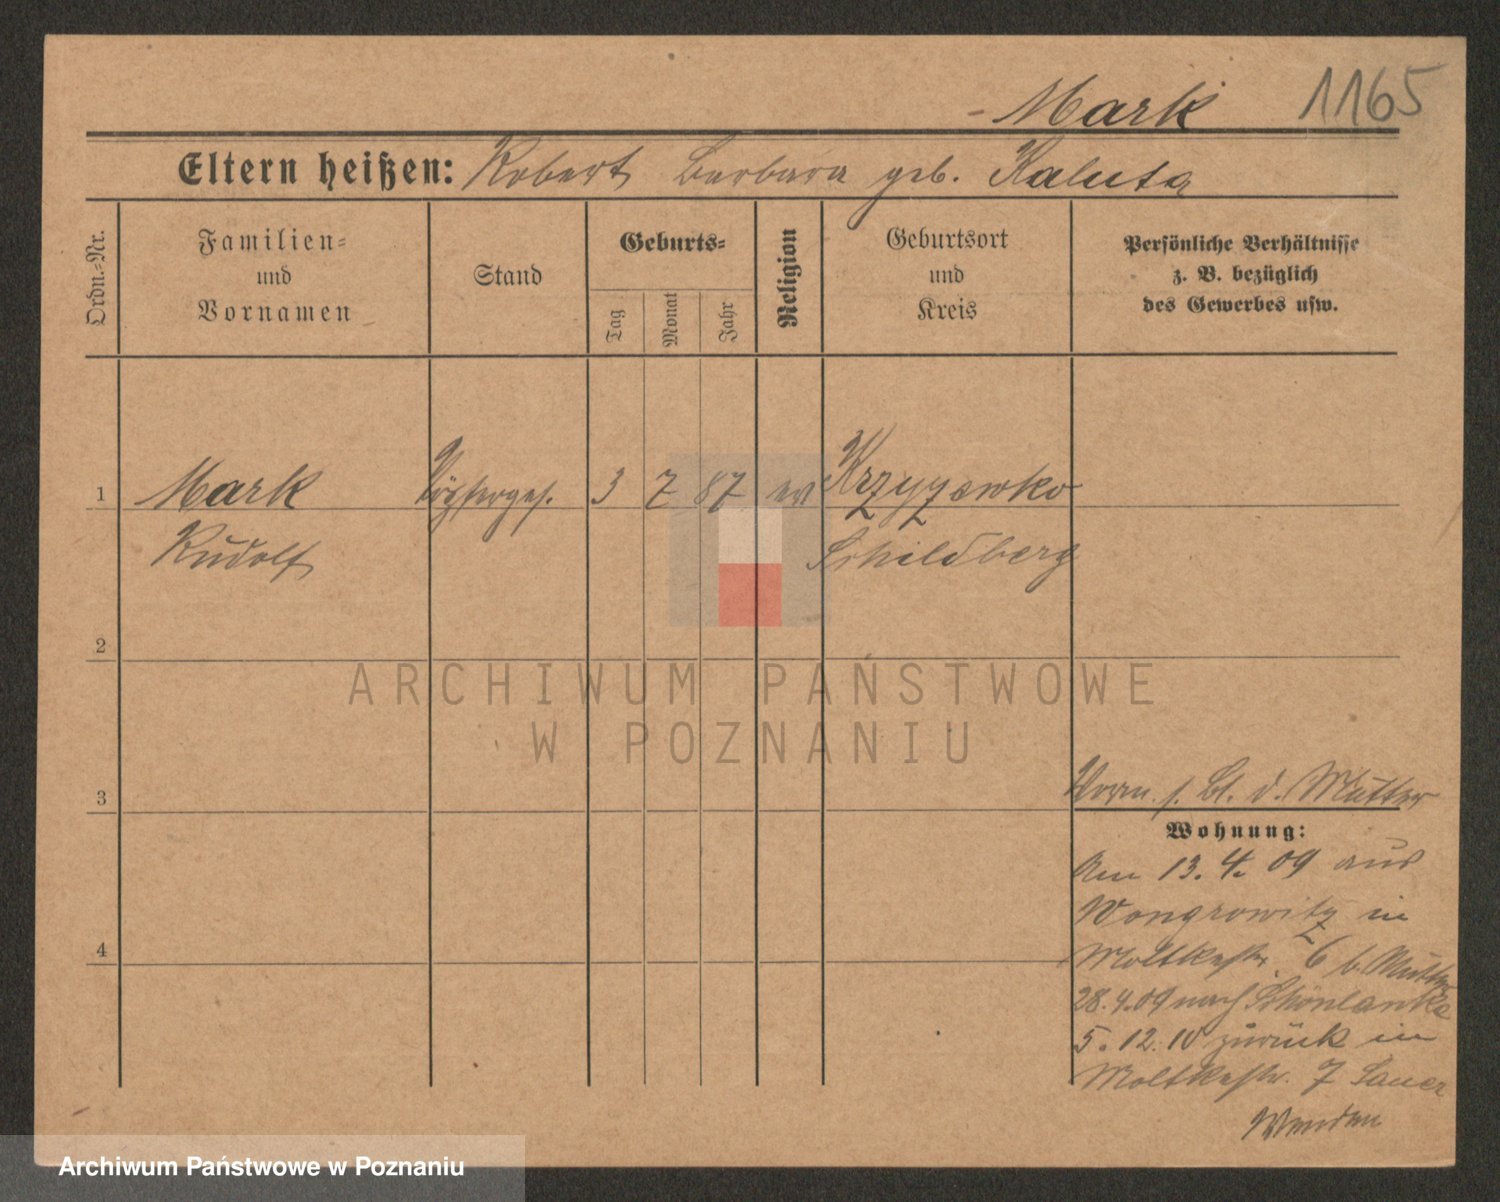 Mark 1165
Eltern heißen: Robert Barbara geb. Kaluta
Ordn.-Nr.
Familien- und Vornamen
Stand
Geburts-
Tag
Monat
Jahr
Religion
Geburtsort und Kreis
Persönliche Verhältnisse z. B. bezüglich des Gewerbes usw.
1 Mark 3 7 87 ev Krzyzowko
Rudolf Schildberg
2
ARCHIWUM PAŃSTWOWE
W POZNANIU
3 s. Bl. d. Mutter
Wohnung:
Am 13. 4. 09 aus
Wongrowitz in
4 Moltkestr. 6 b. Mutter
28.4.09 nach Schönlanke
5. 12. 10 zurück in
Moltkestr. 7 Sauer
Wenden
Archiwum Państwowe w Poznaniu